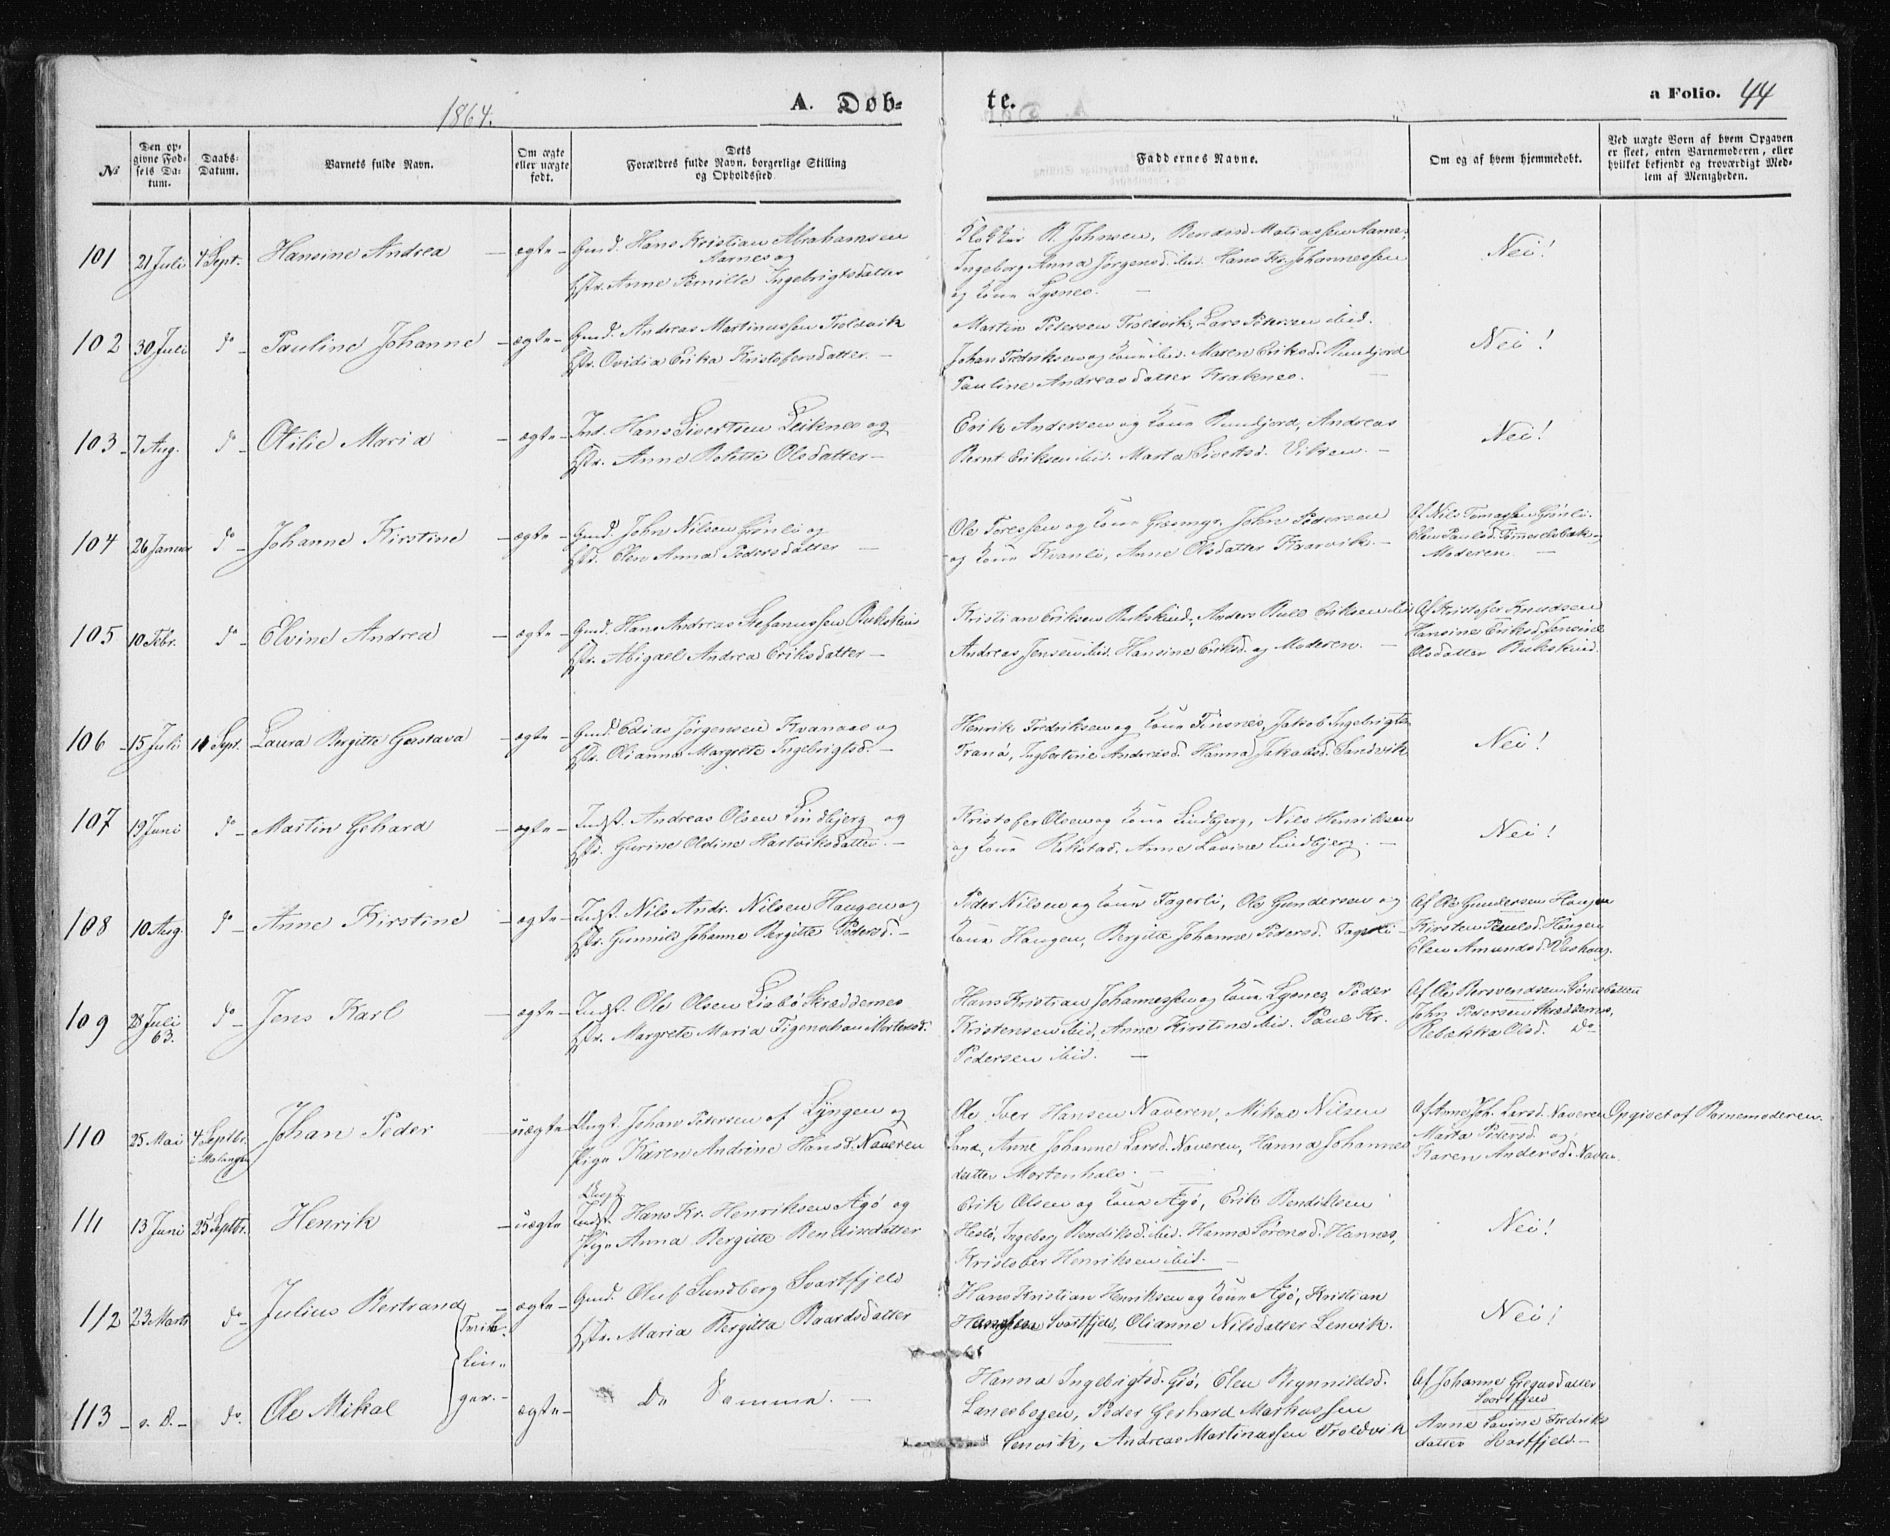 1864.
A. Døb-
te.
a Folio. 44
№
Den op-
givne Fød-
sels Da-
tum.
Daabs-
Datum.
Barnets fulde Navn.
Om ægte
eller uægte
født.
Dets
Forældres fulde Navn, borgerlige Stilling
og Opholdssted.
Faddernes Navne.
Om og af hvem hjemmedøbt.
Ved uægte Børn af hvem Opgaven
er skeet, enten Barnemoderen, eller
hvilket bekjendt og troværdigt Med-
lem af Menigheden.
101 21 Juli 4 Sept. Hansine Andrea – ægte – Gmd. Hans Kristian Abrahamsen
Aarnes og
Hstr. Anne Pernille Ingebrigtsdatter
Klokker B. Johnsen, Bendix Matiassen Aarnes,
Ingeborg Anna Jørgensd. ibid. Hans Kr. Johannessen
og Kone Lysnes. –
Nei!
102 30 Juli do – Pauline Johanne – ægte – Gmd. Andreas Martinussen Troldvik
Hstr. Ovidia Erika Kristofersdatter –
Martin Petersen Troldvik, Lars Petersen ibid.
Johan Fredriksen og Kone ibid. Maren Eriksd. Rundfjord
Pauline Andreasdatter Kraknes.
Nei!
103 – 7 Aug. do – Otilie Maria – ægte – Ind. Hans Sivertsen Leiknes og
Hstr. Anne Bolette Olsdatter –
Erik Andersen og Kone Rundfjord, Andreas
Bernt Eriksen ibid. Marta Sivertsd. Viken. –
Nei!
104 26 Januar do – Johanne Kirstine – ægte – Gmd. John Nilsen Grønli og
Hstr. Elen Anna Pedersdatter –
Ole Toressen og Kone Græsmyr, John Pedersen
og Kone Kvanli, Anne Olsdatter Kaarvik. –
Af Nils Tomassen Grønli.
Elen Paulsd. Tømmerelvbak og
Moderen. –
105 10 Febr. do – Elvine Andrea – ægte – Gmd. Hans Andreas Stefanussen Bukskind
Hstr. Abigael Andrea Eriksdatter –
Kristian Eriksen Bukskind, Anders Buls Eriksen ibid
Andreas Jensen ibid. Hansine Eriksd. og Moderen. –
Af Kristofer Knudsen
Hansine Eriksd. Jensine
Olsdatter Bukskind.
106 – 15 Juli 11 Sept. Laura Bergitte Gustava – ægte – Gmd. Edias Jørgensen Kvanaas og
Hstr. Olianna Margrete Ingebrigtsd. –
Henrik Fredriksen og Kone Finsnes, Jakob Ingebrigts
Tranø, Ingbertine Andreasd. Hanna Jakobsd. Sandvik
Nei!
107 19 Juni do – Martin Gehard – ægte – Indst. Andreas Olsen Lindbjerg og
Hstr. Gurine Oldine Hartviksdatter. –
Kristofer Olsen og Kone Lindbjerg, Nils Henriksen
og Kone Rikstad, Anne Lovine Lindbjerg. –
Nei!
108 10 Aug. do – Anne Kirstine – ægte – Indst. Nils Andr. Nilsen Haugen og
Hstr. Gunnild Johanna Bergitte Pedersd. –
Peder Nilsen og Kone Fagerli, Ole Gundersen og
Kone Haugen, Bergitte Johanne Pedersd. Fagerli –
Af Ole Gundersen Haugen
Kirsten Paulsd. Haugen
Elen Amundsd. Vashaug.
109 28 Juli
63. do – Jens Karl – ægte – Indst. Ole Olsen Liabø Skræddernes
Hstr. Margrete Maria Figenschau Mortensd.
Hans Kristian Johannessen og Kone Lysnes, Peder
Kristensen ibid, Anne Kirstine ibid. Paul Kr.
Pedersen ibid. –
Af Ole Bersvendsen Grønsbotten
John Pedersen Skræddernes,
Rebækka Olsd. Do
110 25 Mai 4 Septbr.
i Malangen Johan Peder – uægte – Ungk. Johan Petersen af Lyngen og
Pige Karen Andrine Hansd. Naveren
Ole Iver Hansen Naveren, Mikal Nilsen
Sand, Anne Johanne Larsd. Naveren, Hanna Johannes
datter Mortenhals. –
Af Anne Joh. Larsd. Naveren
Marta Pedersd. og
Karen Andersd. Naveren.
Opgivet af Barnemoderen.
111 13 Juni 25 Septbr. Henrik – uægte Ungk
Indst. Hans Kr. Henriksen Agø og
Pige Anna Bergitte Bendixdatter
Erik Olsen og Kone Agø, Erik Bendiktsen
Hestø, Ingeborg Bendiksd. ibid. Hanna Sørensd. Hannes,
Kristober Henriksen ibid. –
Nei!
112 23 Marts do – Julius Bertrand – ægte – Gmd. Oluf Sundberg Svartfjeld
Hstr. Maria Bergitta Baardsdatter
Hans Kristian Henriksen og Kone Agø, Kristian
Hansen Svartfjeld, Olianne Nilsdatter Lenvik.
Nei!
Tvil-
lin-
ger. –
113 – s. D. – do. Ole Mikal ægte – De Samme. –
Hanna Ingebrigtsd. Giø, Elen Brynnildsd.
Lanesbogen, Peder Gerhard Markussen
Lenvik, Andreas Martinussen Troldvik
Af Johanne Gregusdatter
Svartfjeld
Anne Lovine Fredriks
datter Svartfjeld –